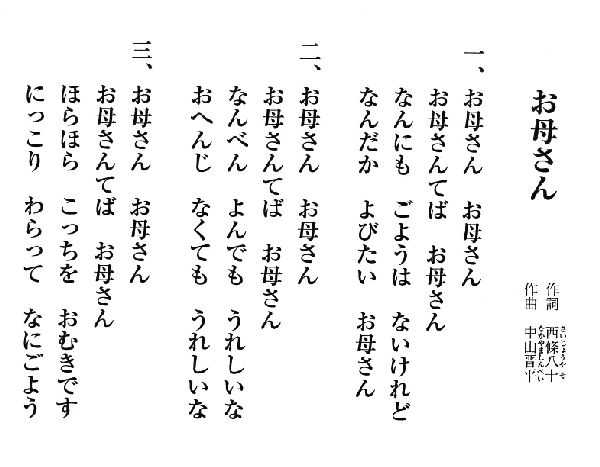 お母さん
作詞 西條八十
さいじょうやそ
作曲 中山晋平
なかやましんぺい
一、お母さん お母さん
お母さんてば お母さん
なんにも ごようは ないけれど
なんだか よびたい お母さん
二、お母さん お母さん
お母さんてば お母さん
なんべん よんでも うれしいな
おへんじ なくても うれしいな
三、お母さん お母さん
お母さんてば お母さん
ほらほら こっちを おむきです
にっこり わらって なにごよう